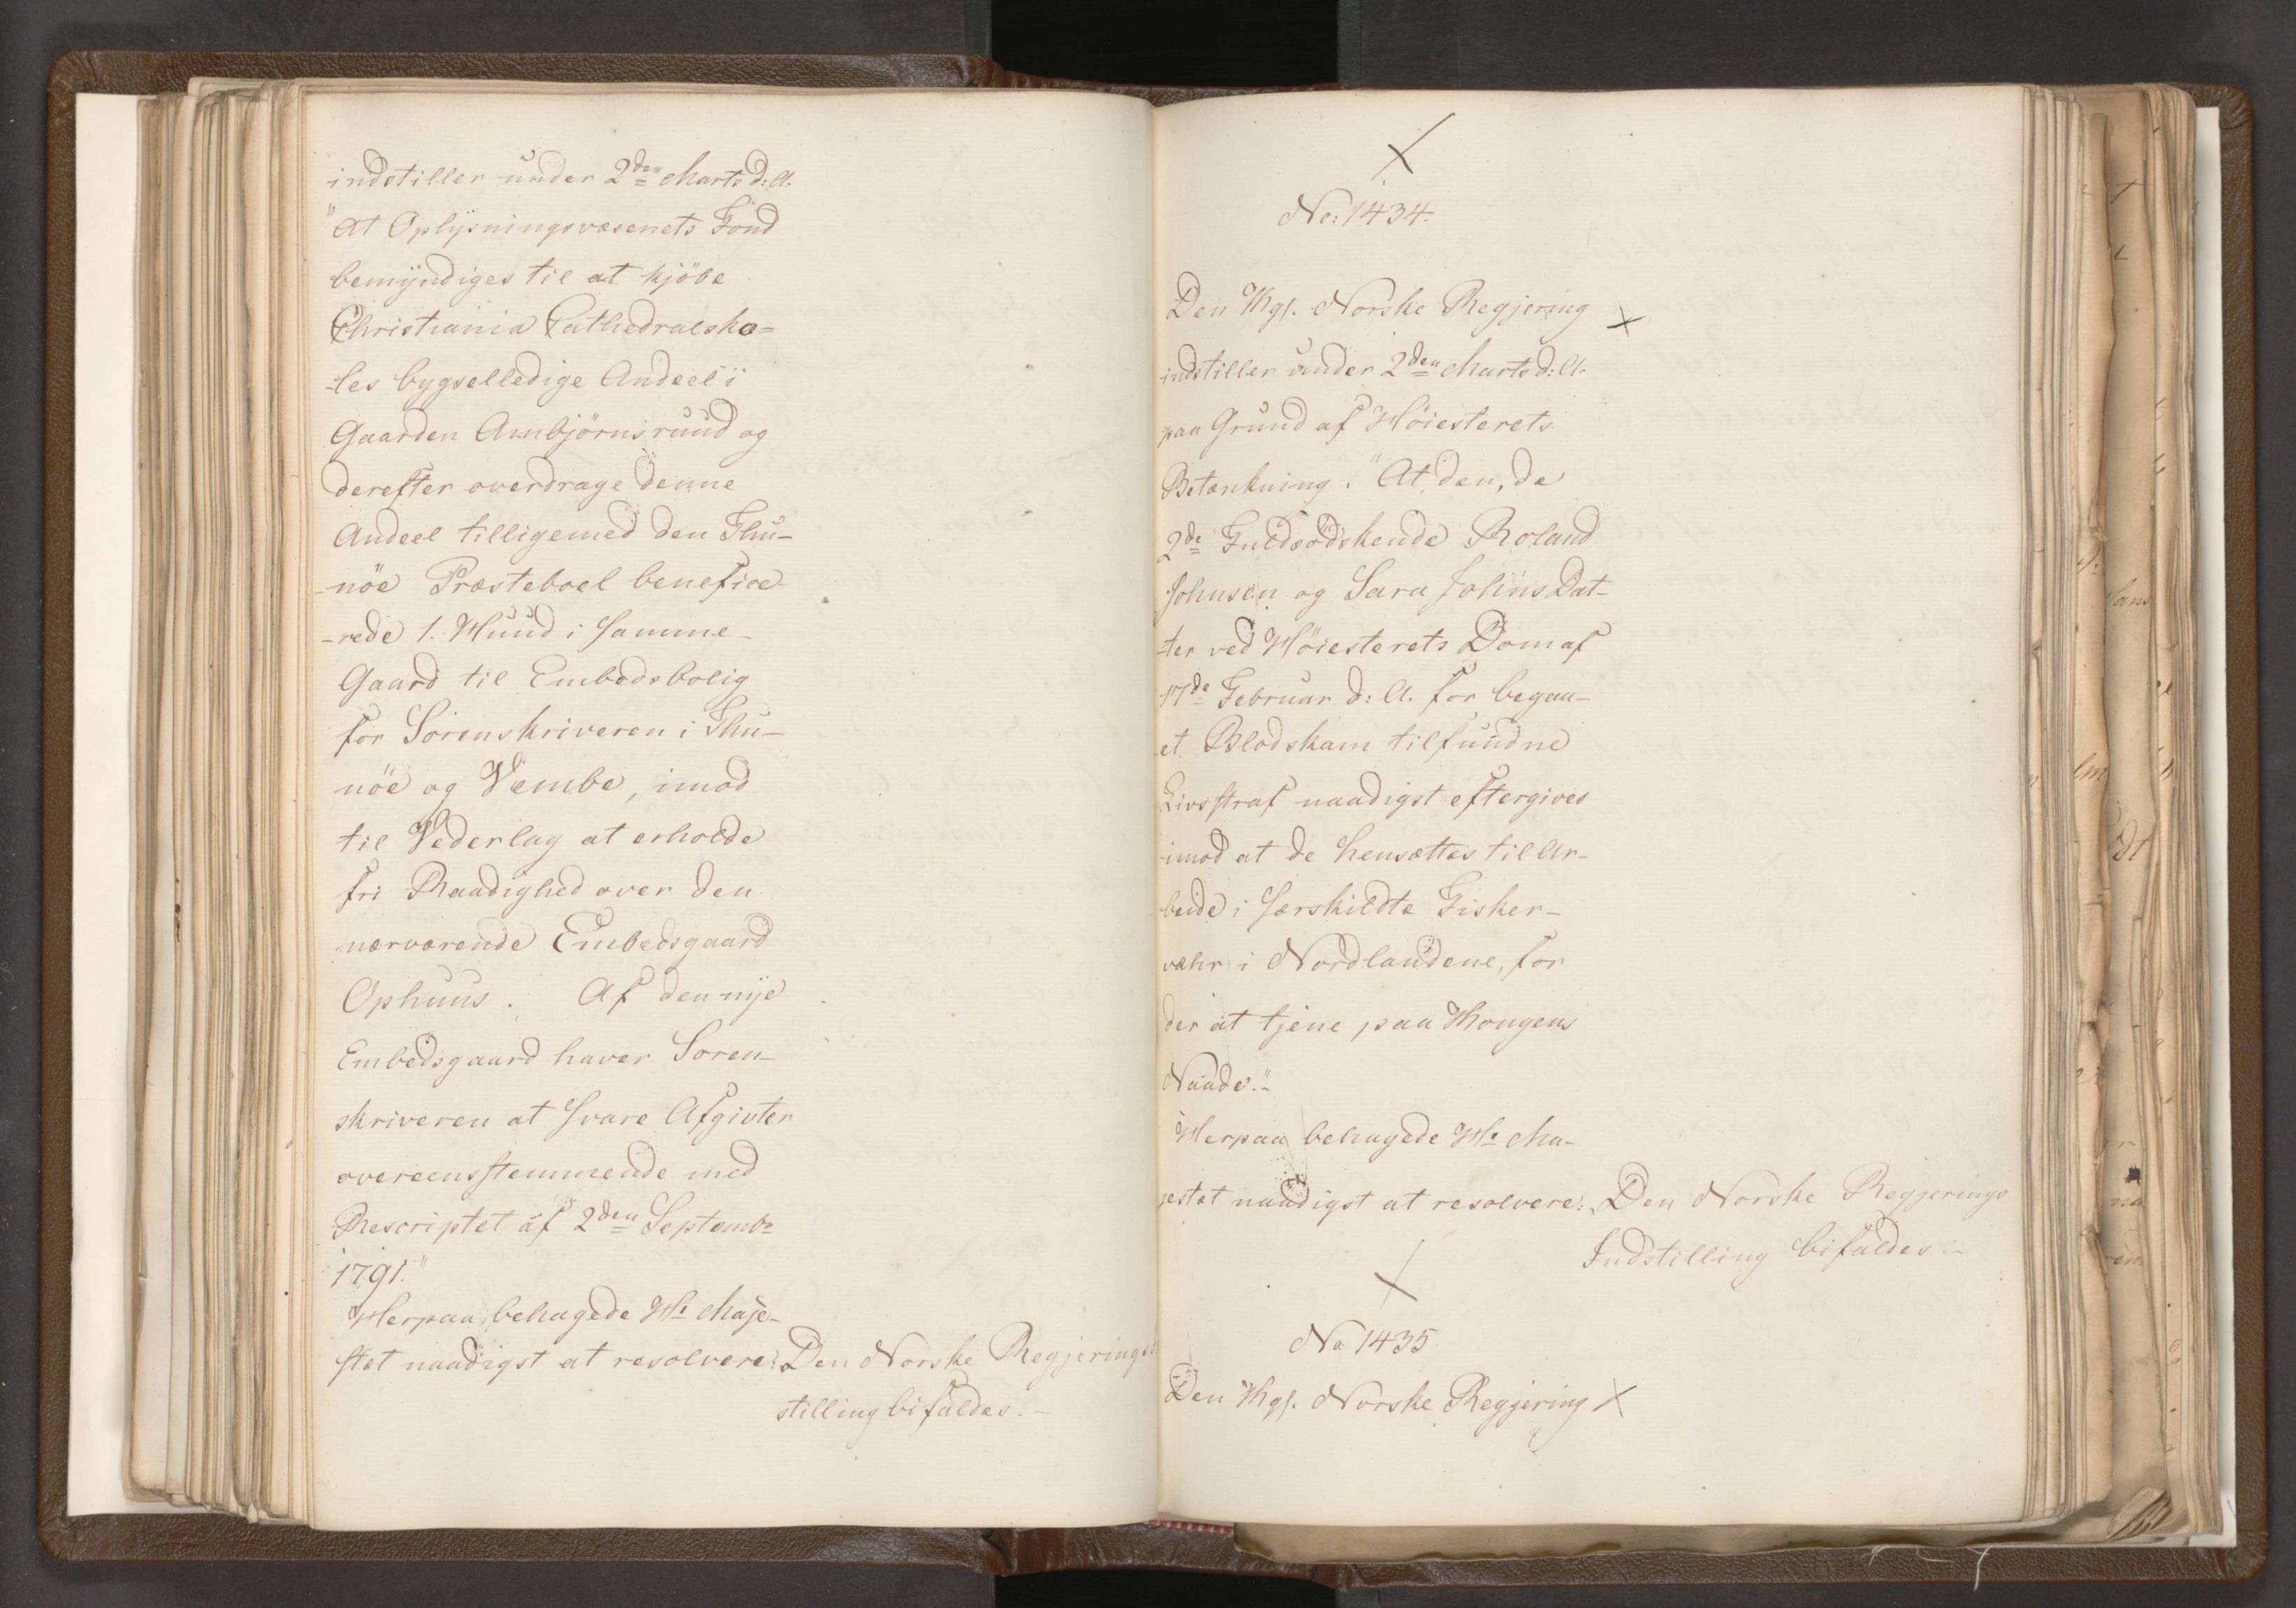 indstiller under 2den Marts d: A.
"At Oplÿsningsvæsenets Fond
bemÿndiges til at kjöbe
Christiania Cathedralsko=
-les bygselledige Andeel i
Gaarden Ambjörnsruud og
derefter overdrage denne
Andeel tilligemed den Thu-
-nöe Præsteboel benefice
-rede 1. Huud i samme
Gaard til Embedsbolig
for Sorenskriveren i Thu-
nöe og Vembe, imod
til Vederlag at erholde
fri Raadighed over den
nærværende Embedsgaard
Ophuus. Af den nÿe
Embedsgaard haver Soren-
skriveren at svare Afgivter
overeensstemmende med
Rescriptet af 2den Septembr
1791."
Herpaa behagede Hs Maje-
stæt naadigst at resolvere: Den Norske Regjerings
stilling bifaldes.-
No: 1434.
Den Kgl. Norske Regjering
indstiller under 2den Marts d: A.
paa Grund af Höiesterets
Betænkning: "At den, de
2de Fuldsödskende Roland
Johnsen og Sara Johns Dat-
-ter ved Höiesterets Dom af
17de Februar d: A. for begaa-
et Blodskam tilfundne
Livsstraf naadigst eftergives
imod at de hensættes til Ar-
beide i særskildte Fisker-
væhr i Nordlandene, for
der at tjene paa Kongens
Naade."
Herpaa behagede Hs Ma-
jestæt naadigst at resolvere: Den Norske Regjerings
Indstilling bifaldes -
No 1435.
Den Kgl. Norske Regjering